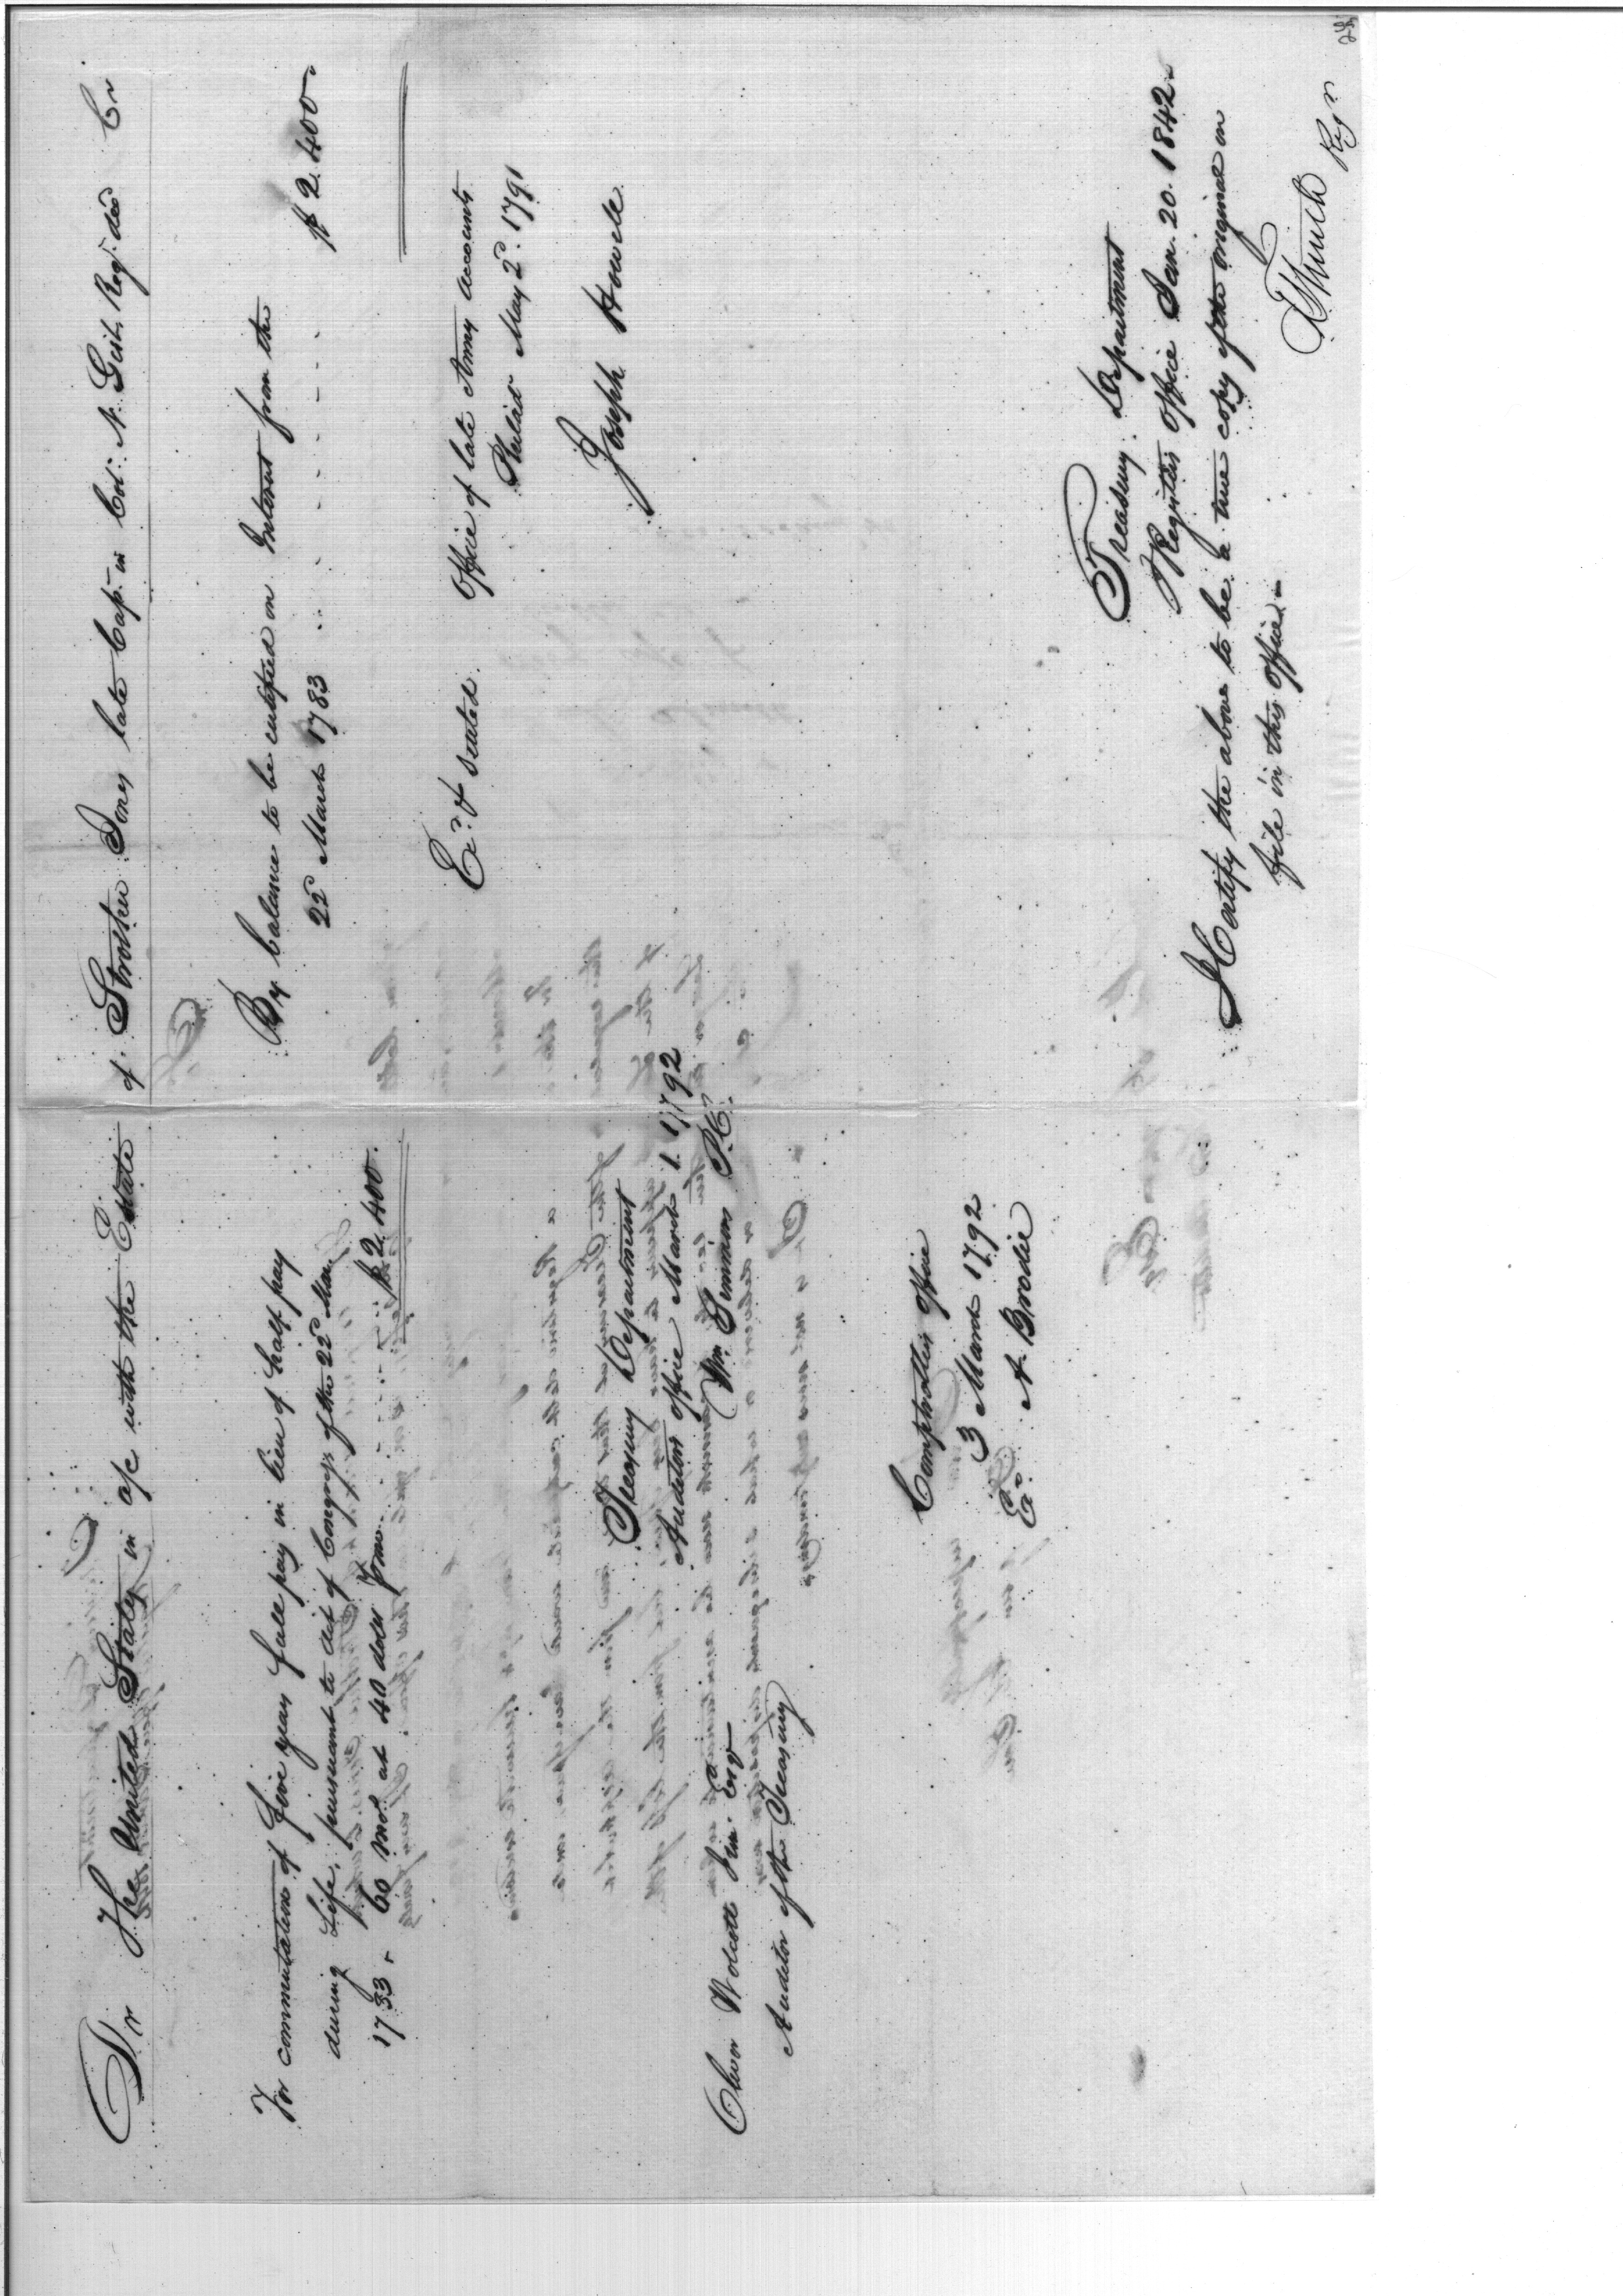 Dr The United States in a/c with the Estate of Strother Jones late Capt. in Col: N. Gist's Reg.t decd Cr
For commutation of five years full pay in lieu of half pay
during Life, pursuant to Act of Congress of the 22d Mar.
1783. 60 mos at 40 dolls pr mo. $2.400.
Treasury Department
Auditors office March 1. 1792
Wm Simmons P.C.
Oliver Wolcott Jun. Esqr
Auditor of the Treasury
Comptrollers office
3 March 1792
Exd A. Brodie
By balance to be certified on Interest from the
22d March 1783 $2.400.
Exd & settled.
Office of late Army accounts
Philada May 2d. 1791
Joseph Howell
Treasury Department
Registers office Jan. 20. 1842.
I Certify the above to be a true copy of the original on
file in this office.
T L Smith Regr